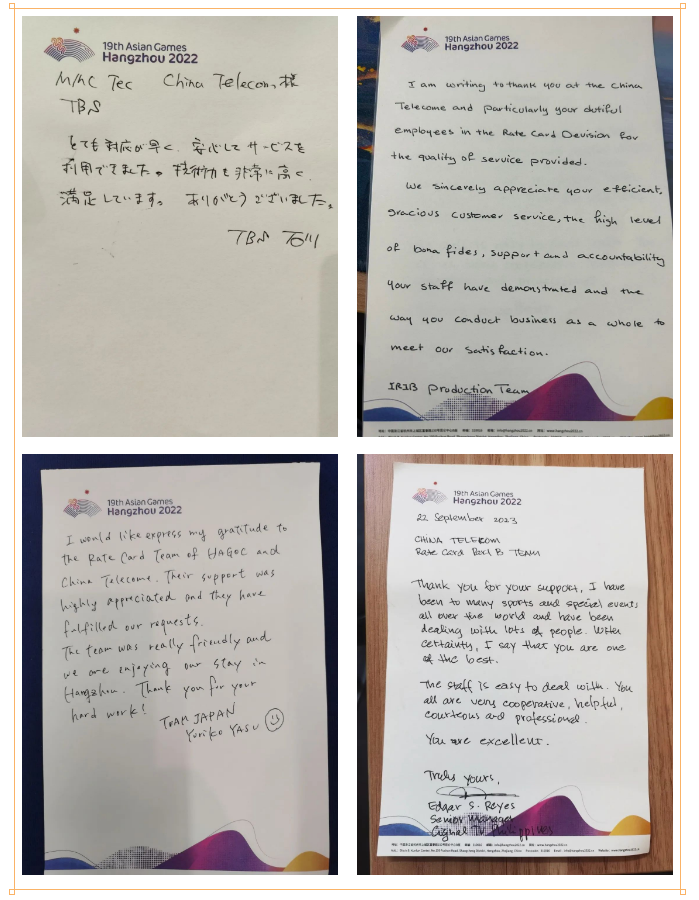 19th Asian Games
Hangzhou 2022
China Telecom 様
TBS
とても対応が早く、安心してサービスを
利用できました。技術力も非常に高く、
満足しています。 ありがとうございました。
TBS 石川
19th Asian Games
Hangzhou 2022
I am writing to thank you at the China
Telecome and particularly your dutiful
employees in the Rate Card Devision for
the quality of service provided.
We sincerely appreciate your efficient,
gracious customer service, the high level
of bona fides, support and accountability
your staff have demonstrated and the
way you conduct business as a whole to
meet our satisfaction.
IRIB Production Team
19th Asian Games
Hangzhou 2022
I would like express my gratitude to
the Rate Card Team of HAGOC and
China Telecome. Their support was
highly appreciated and they have
fulfilled our requests.
The team was really friendly and
we are enjoying our stay in
Hangzhou. Thank you for your
hard work!
TEAM JAPAN
Yuriko YASU
19th Asian Games
Hangzhou 2022
22 September 2023
CHINA TELEKOM
Rate Card B TEAM
Thank you for your support, I have
been to many sports and special events
all over the world and have been
dealing with lots of people. With
certainty, I say that you are one
of the best.
The staff is easy to deal with. You
all are very cooperative, helpful,
courteous and professional.
You are excellent.
Truly yours,
Edgar S. Reyes
Senior Manager
Cignal TV Philippines